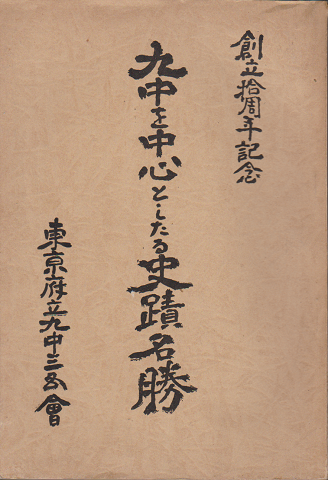 創立拾周年記念
九中を中心としたる史蹟名勝
東京府立九中三五會